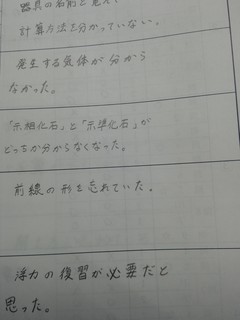 器具の名前を覚えて
計算方法を分かっていない。
発生する気体が分から
なかった。
「示相化石」と「示準化石」が
どっちか分からなくなった。
前線の形を忘れていた。
浮力の復習が必要だと
思った。